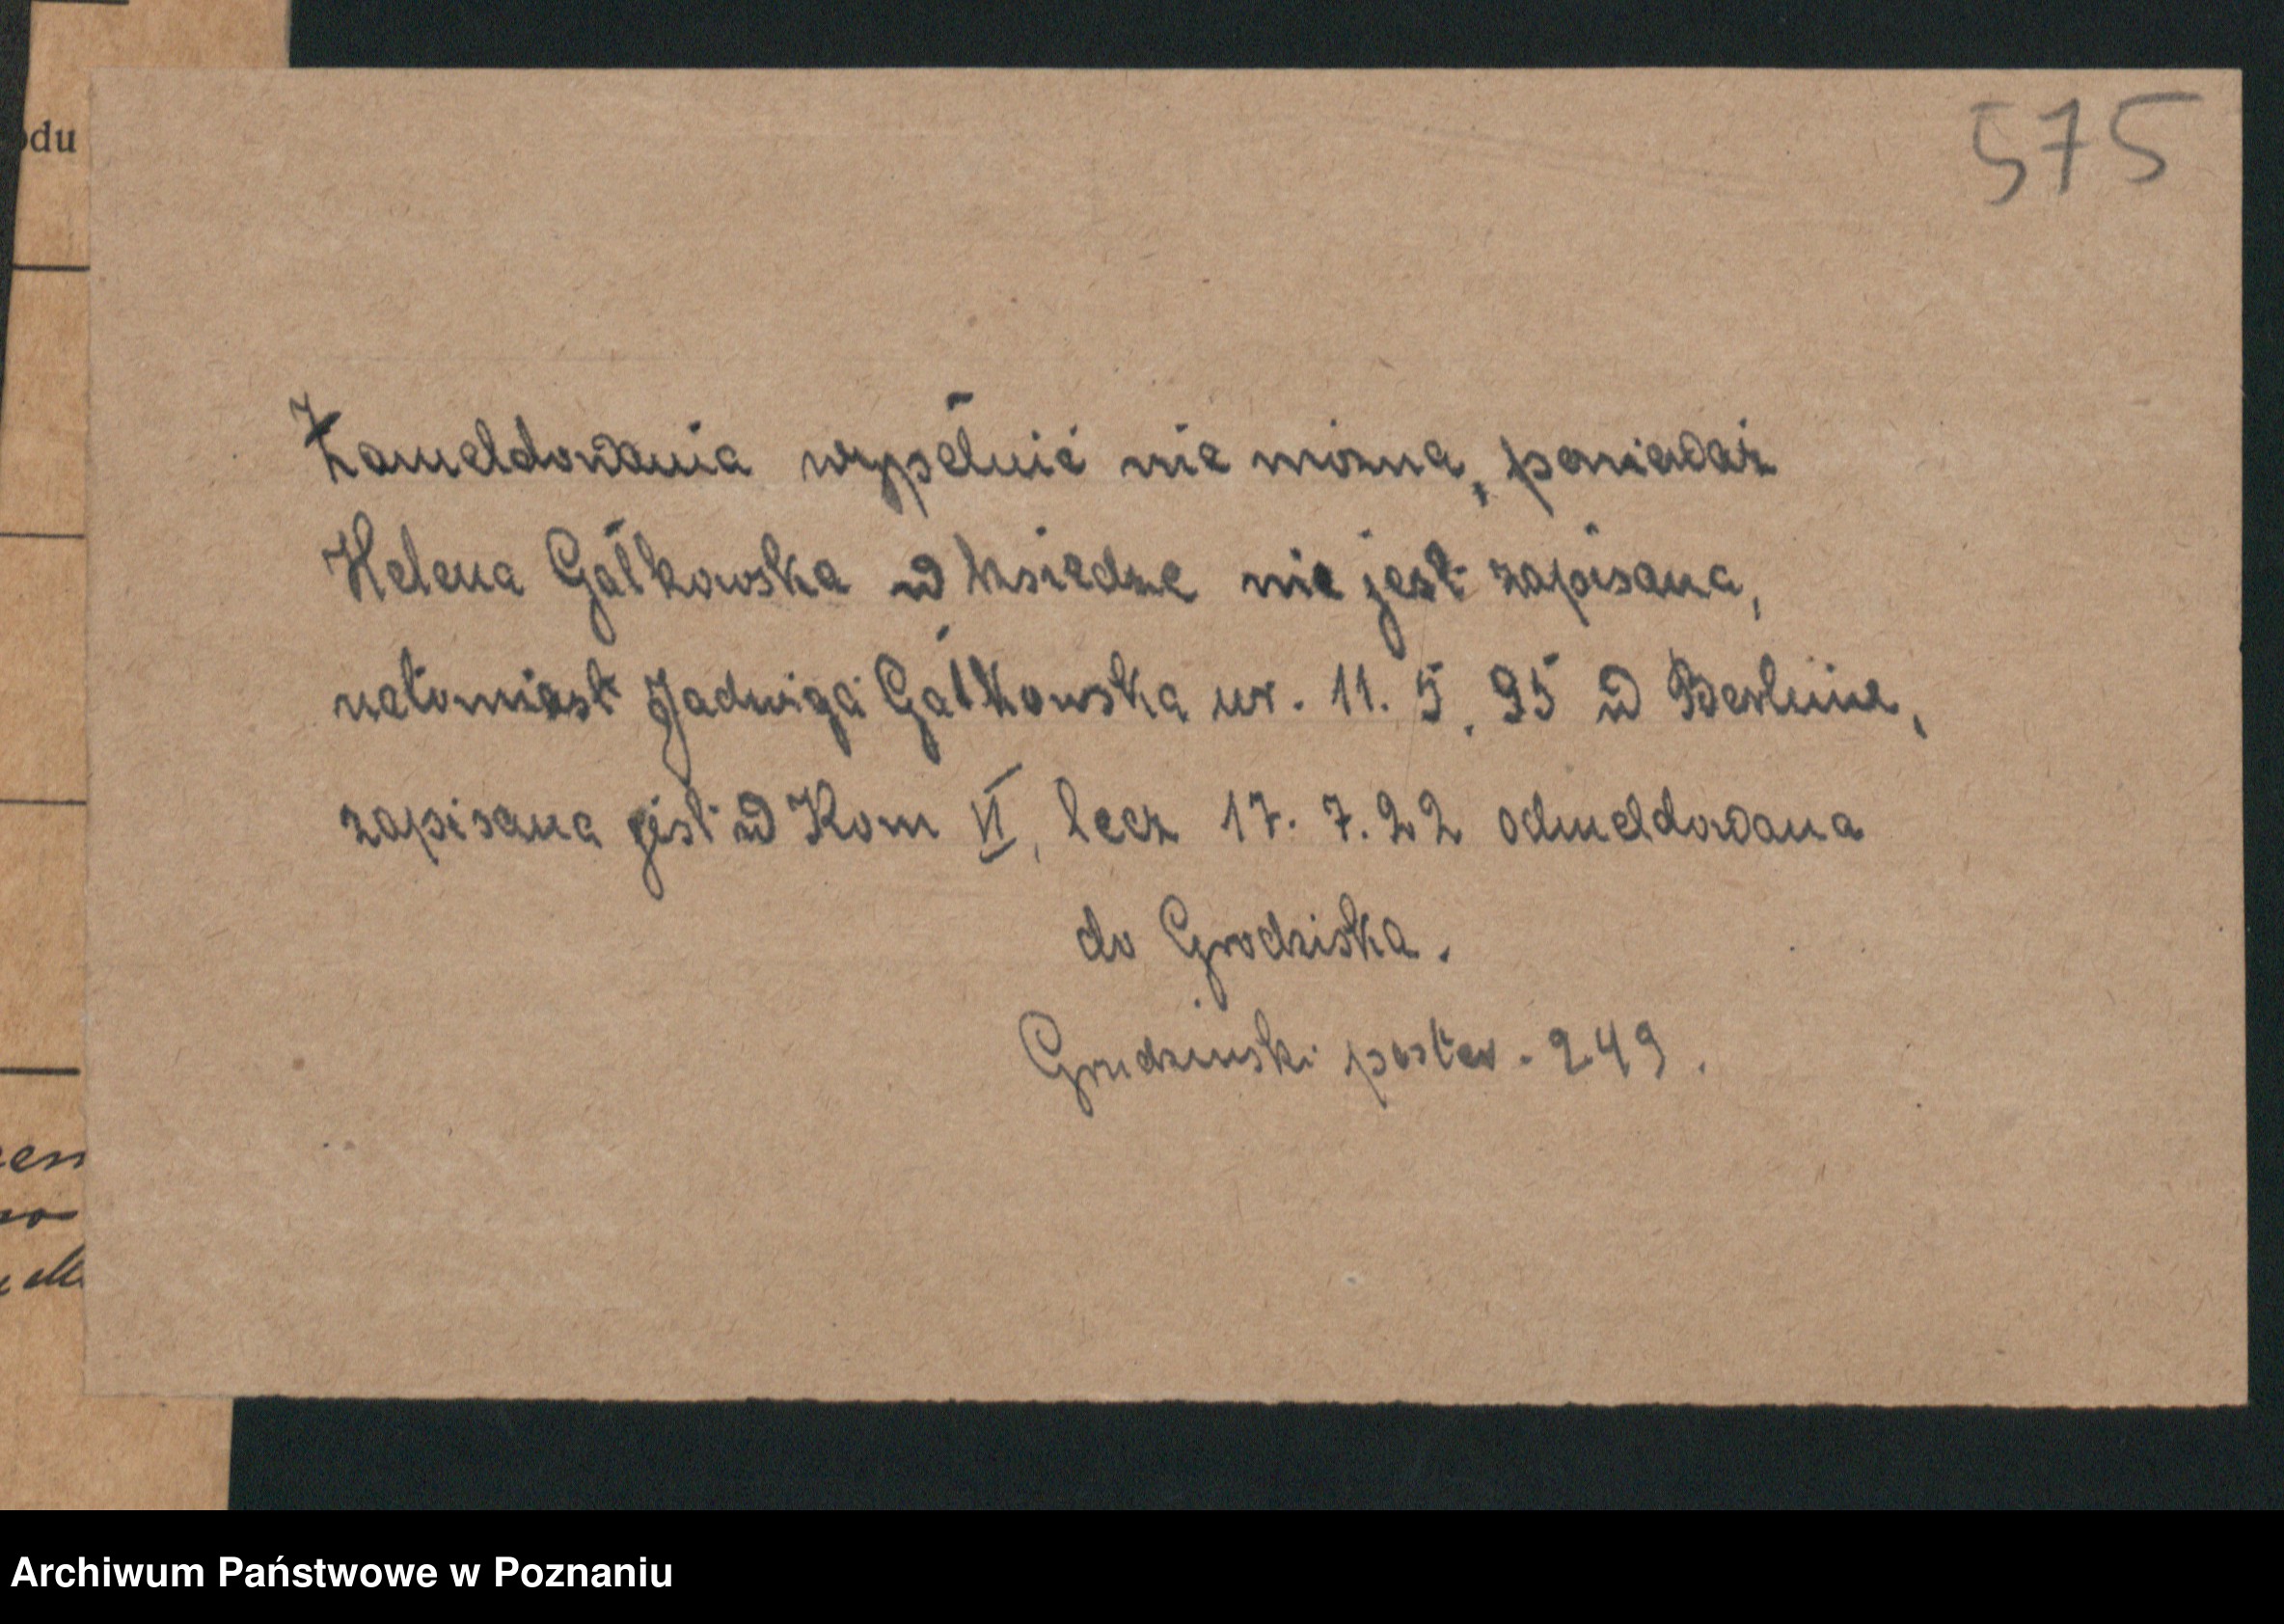 odu
575
Zameldowania wypełnić nie można, ponieważ
Helena Gałkowska w ksiedze nie jest zapisana,
natomiast Jadwiga Gałkowska ur. 11. 5. 95 w Berlinie,
zapisana jest w Kom VI, lecz 17. 7. 22 odmeldowana
do Grodziska.
Grudzinski poster. 249.
Archiwum Państwowe w Poznaniu